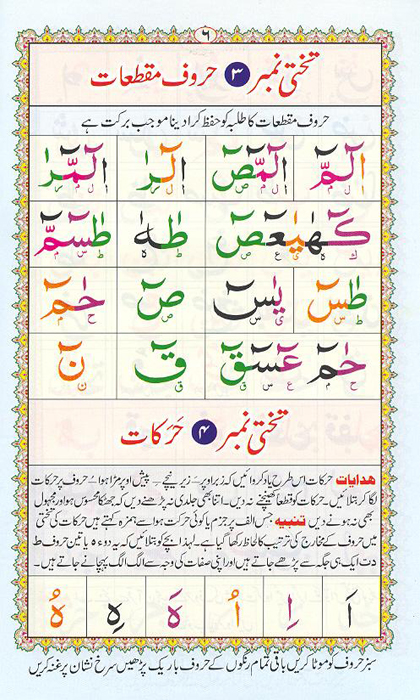 ۶
تختی نمبر ۳ حروف مقطعات
حروف مقطعات کا طلبہ کو حفظ کرا دینا موجب برکت ہے
الٓمّٓ الٓمّٓصٓ الٓرٰ الٓمّٓرٰ
كٓهٰيٰعٓصٓ طٰهٰ طٰسٓمّٓ
طٰسٓ يٰسٓ صٓ حٰمٓ
حٰمٓ عٓسٓقٓ قٓ نٓ
تختی نمبر ۴ حَرَکات
ھدایات حرکات اس طرح یاد کروائیں کہ زبر اوپر ۔ زیر نیچے ۔ پیش اوپر مڑا ہوا ۔ حروف پر حرکات
لگا کر بتلائیں ۔ حرکات کو قطعاً کھینچنے نہ دیں ۔ اتنا بھی جلدی نہ پڑھنے دیں کہ جھٹکا محسوس ہو اور مجہول
بھی نہ ہونے دیں تنبیه جس الف پر جزم یا کوئی حرکت ہو اسے ہمزہ کہتے ہیں حرکات کی تختی
میں حروف کے مخارج کی ترتیب کا لحاظ رکھا گیا ہے ۔ لہذا بچے کو بتلائیں کہ یہ دو ء ہ یا تین حروف ط
د ت ایک ہی جگہ سے پڑھے جاتے ہیں اور اپنی صفات کی وجہ سے الگ الگ پہچانے جاتے ہیں ۔
اَ اِ اُ هَ هِ هُ
سبز حروف کو موٹا کریں باقی تمام رنگوں کے حروف باریک پڑھیں سرخ نشان پر غنہ کریں